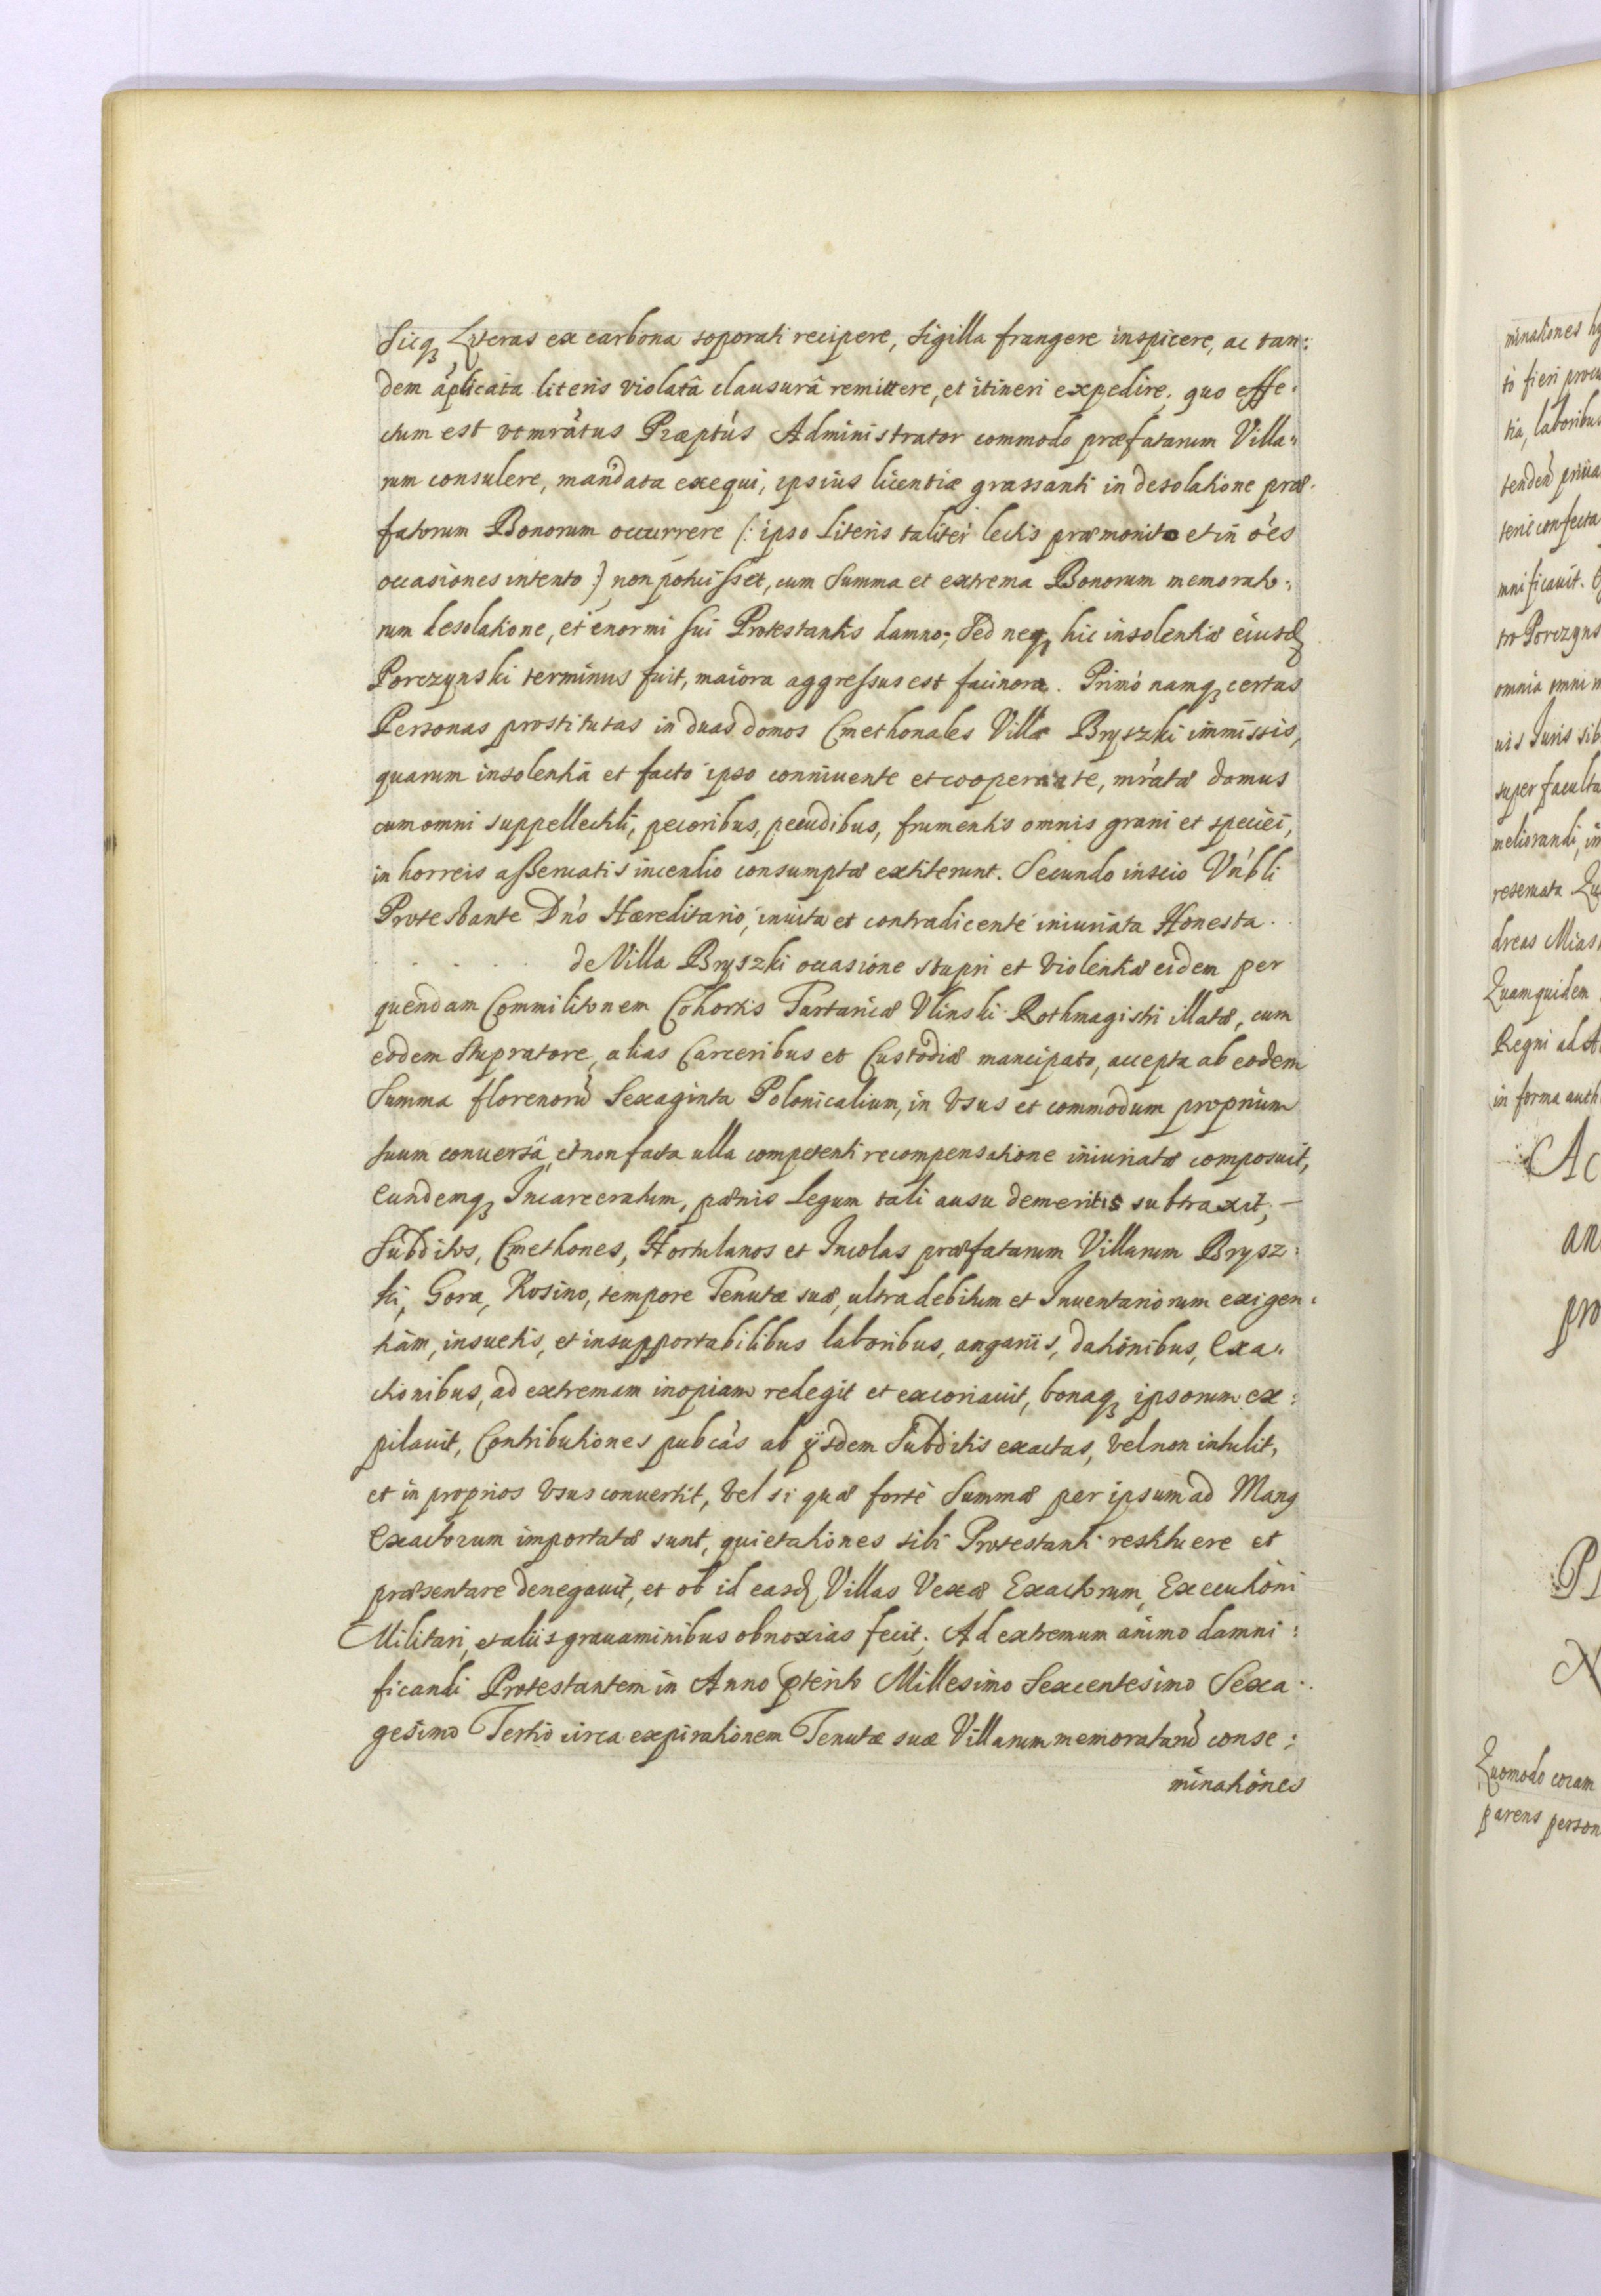 Sicq₃ Lręras ex carbona soporati recipere, Sigilla frangere inspicere, ac tan:
dem aplicata literis violatâ clausurâ remittere, et itineri expedire. quo effe:
ctum est vt mràtus Præptùs Administrator commodo præfatarum Villa:
rum consulere, mandata exequi, ipsius licentiæ grassanti in desolatione præ:
fatorum Bonorum occurrere (: ipso Literis taliter lectis præmonito et in òes
occasiones intento :) non potuisset, cum Summa et extrema Bonorum memorato:
rum desolatione, et enormi sui Protestantis damno; Sed neq₃ hic insolentiæ eiusd
Porczynski terminus fuit, maiora aggressus est facinora. Primò namq₃ certas
Personas prostitutas in duas domos Cmethonales Villæ Bryszki immissis,
quarum insolentiâ et facto ipso conniuente et cooperante, mràtæ domus
cum omni suppellectili, pecoribus, pecudibus, frumentis omnis grani et speciei,
in horreis asseruatis incendio consumptæ extiterunt. Secundo inscio Vnbli
Protestante Dno Hæreditario, inuita et contradicente iniuriata Honesta.
. . . . de Villa Bryszki occasione stupri et violentiæ eidem per
quendam Commilitonem Cohortis Tartaricæ Vlinski Rothmagistri illatæ, cum
eodem stupratore, alias Carceribus et Custodiæ mancipato, accepta ab eodem
Summa florenorũ Sexaginta Polonicalium, in Vsus et commodum proprium
suum conuersâ, et non facta ulla competenti recompensatione iniuriatæ composuit,
Eundemq₃ Incarceratum, pænis Legum tali ausu demeritis subtraxit; –
Subditos, Cmethones, Hortulanos et Incolas præfatarum Villarum Brysz:
ki, Gora, Rosino, tempore Tenutæ suæ, ultra debitum et Inuentariorum exigen:
tiam, insuetis, et insupportabilibus laboribus, angariis, dationibus, Exa:
ctionibus, ad extremam inopiam redegit et excoriauit, bonaq₃ ipsorum ex:
pilauit, Contributiones pubcàs ab ÿsdem Subditis exactas, vel non intulit,
et in proprios Vsus conuertit, Vel si quæ fortè Summæ per ipsum ad Mang
Exactorum importatæ sunt, quietationes sibi Protestanti restituere et
præsentare denegauit, et ob id easd Villas Vexæ Exactorum, Executioni
Militari, et aliis grauaminibus obnoxias fecit. Ad extremum animo damni:
ficandi Protestantem in Anno pterito Millesimo Sexcentesimo Sexa:
gesimo Tertio circa expirationem Tenutæ suæ Villarum memoratarũ conse:
minationes
minationes
tò fieri
tia, laboribus
tendeñ
terit confecta
mnificauit.
omnia omni
uis Iuris sib
super faculta
meliorandi, in
reseruata
dreas Mias
Quamquidem
Regni ad
in forma auth
Ac
an
pro
Quomodo coram
parens person